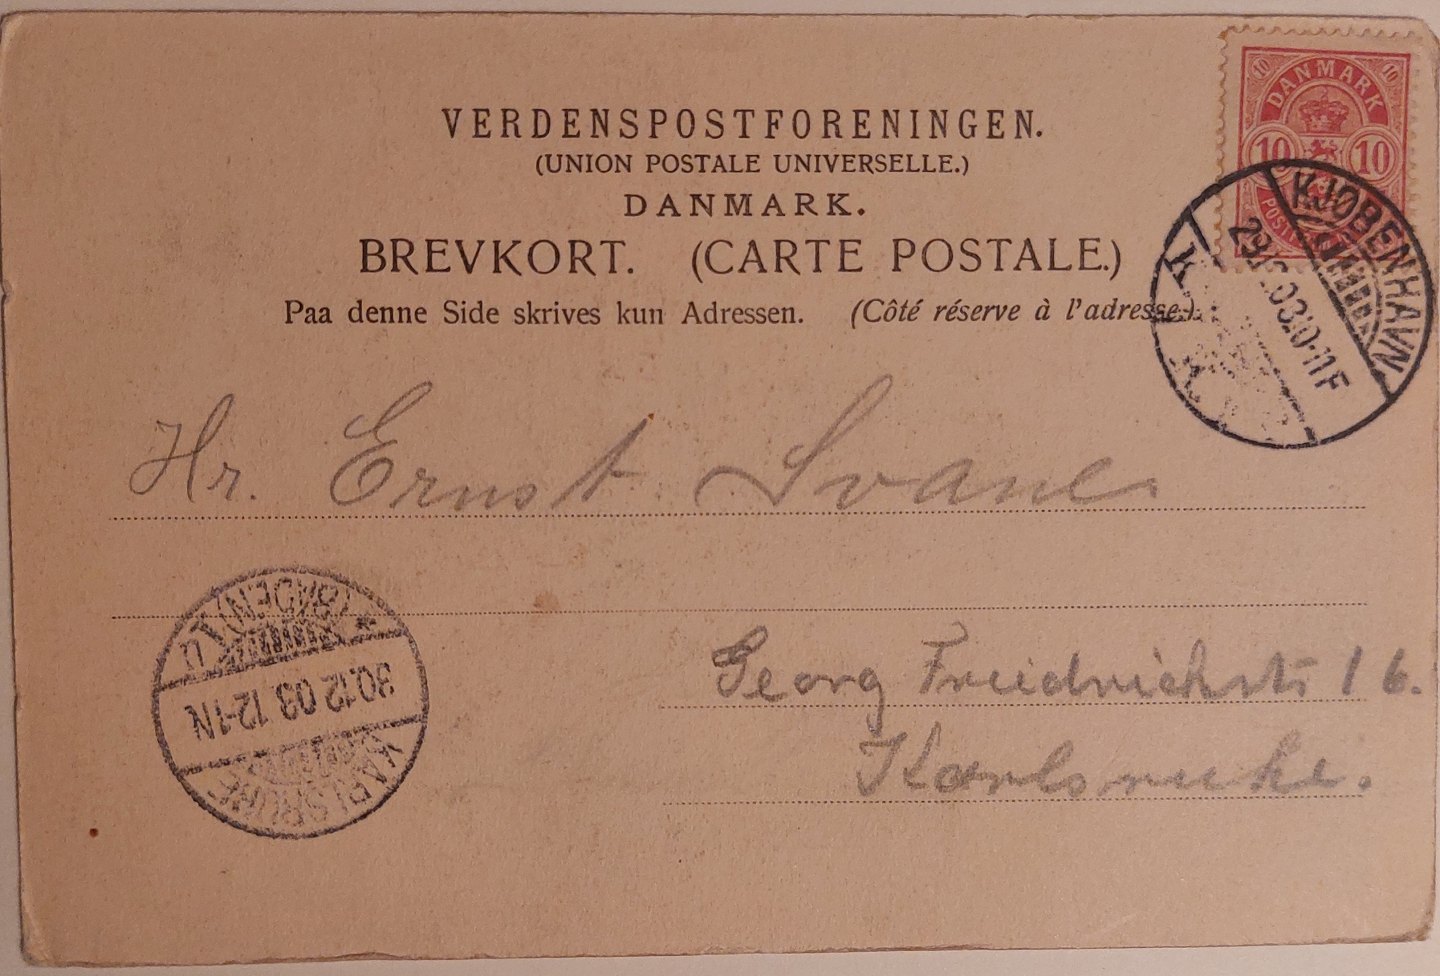 10 DANMARK 10
10 10
VERDENSPOSTFORENINGEN.
(UNION POSTALE UNIVERSELLE.)
DANMARK.
BREVKORT. (CARTE POSTALE.)
Paa denne Side skrives kun Adressen. (Côté réserve à l'adresse.)
KJØBENHAVN
29.12.03.10-11F
K K
Hr. Ernst Svane
Georg Freidrichstr 16.
Karlsruhe.
KARLSRUHE
30.12.03. 12-1N
(BADEN) 1